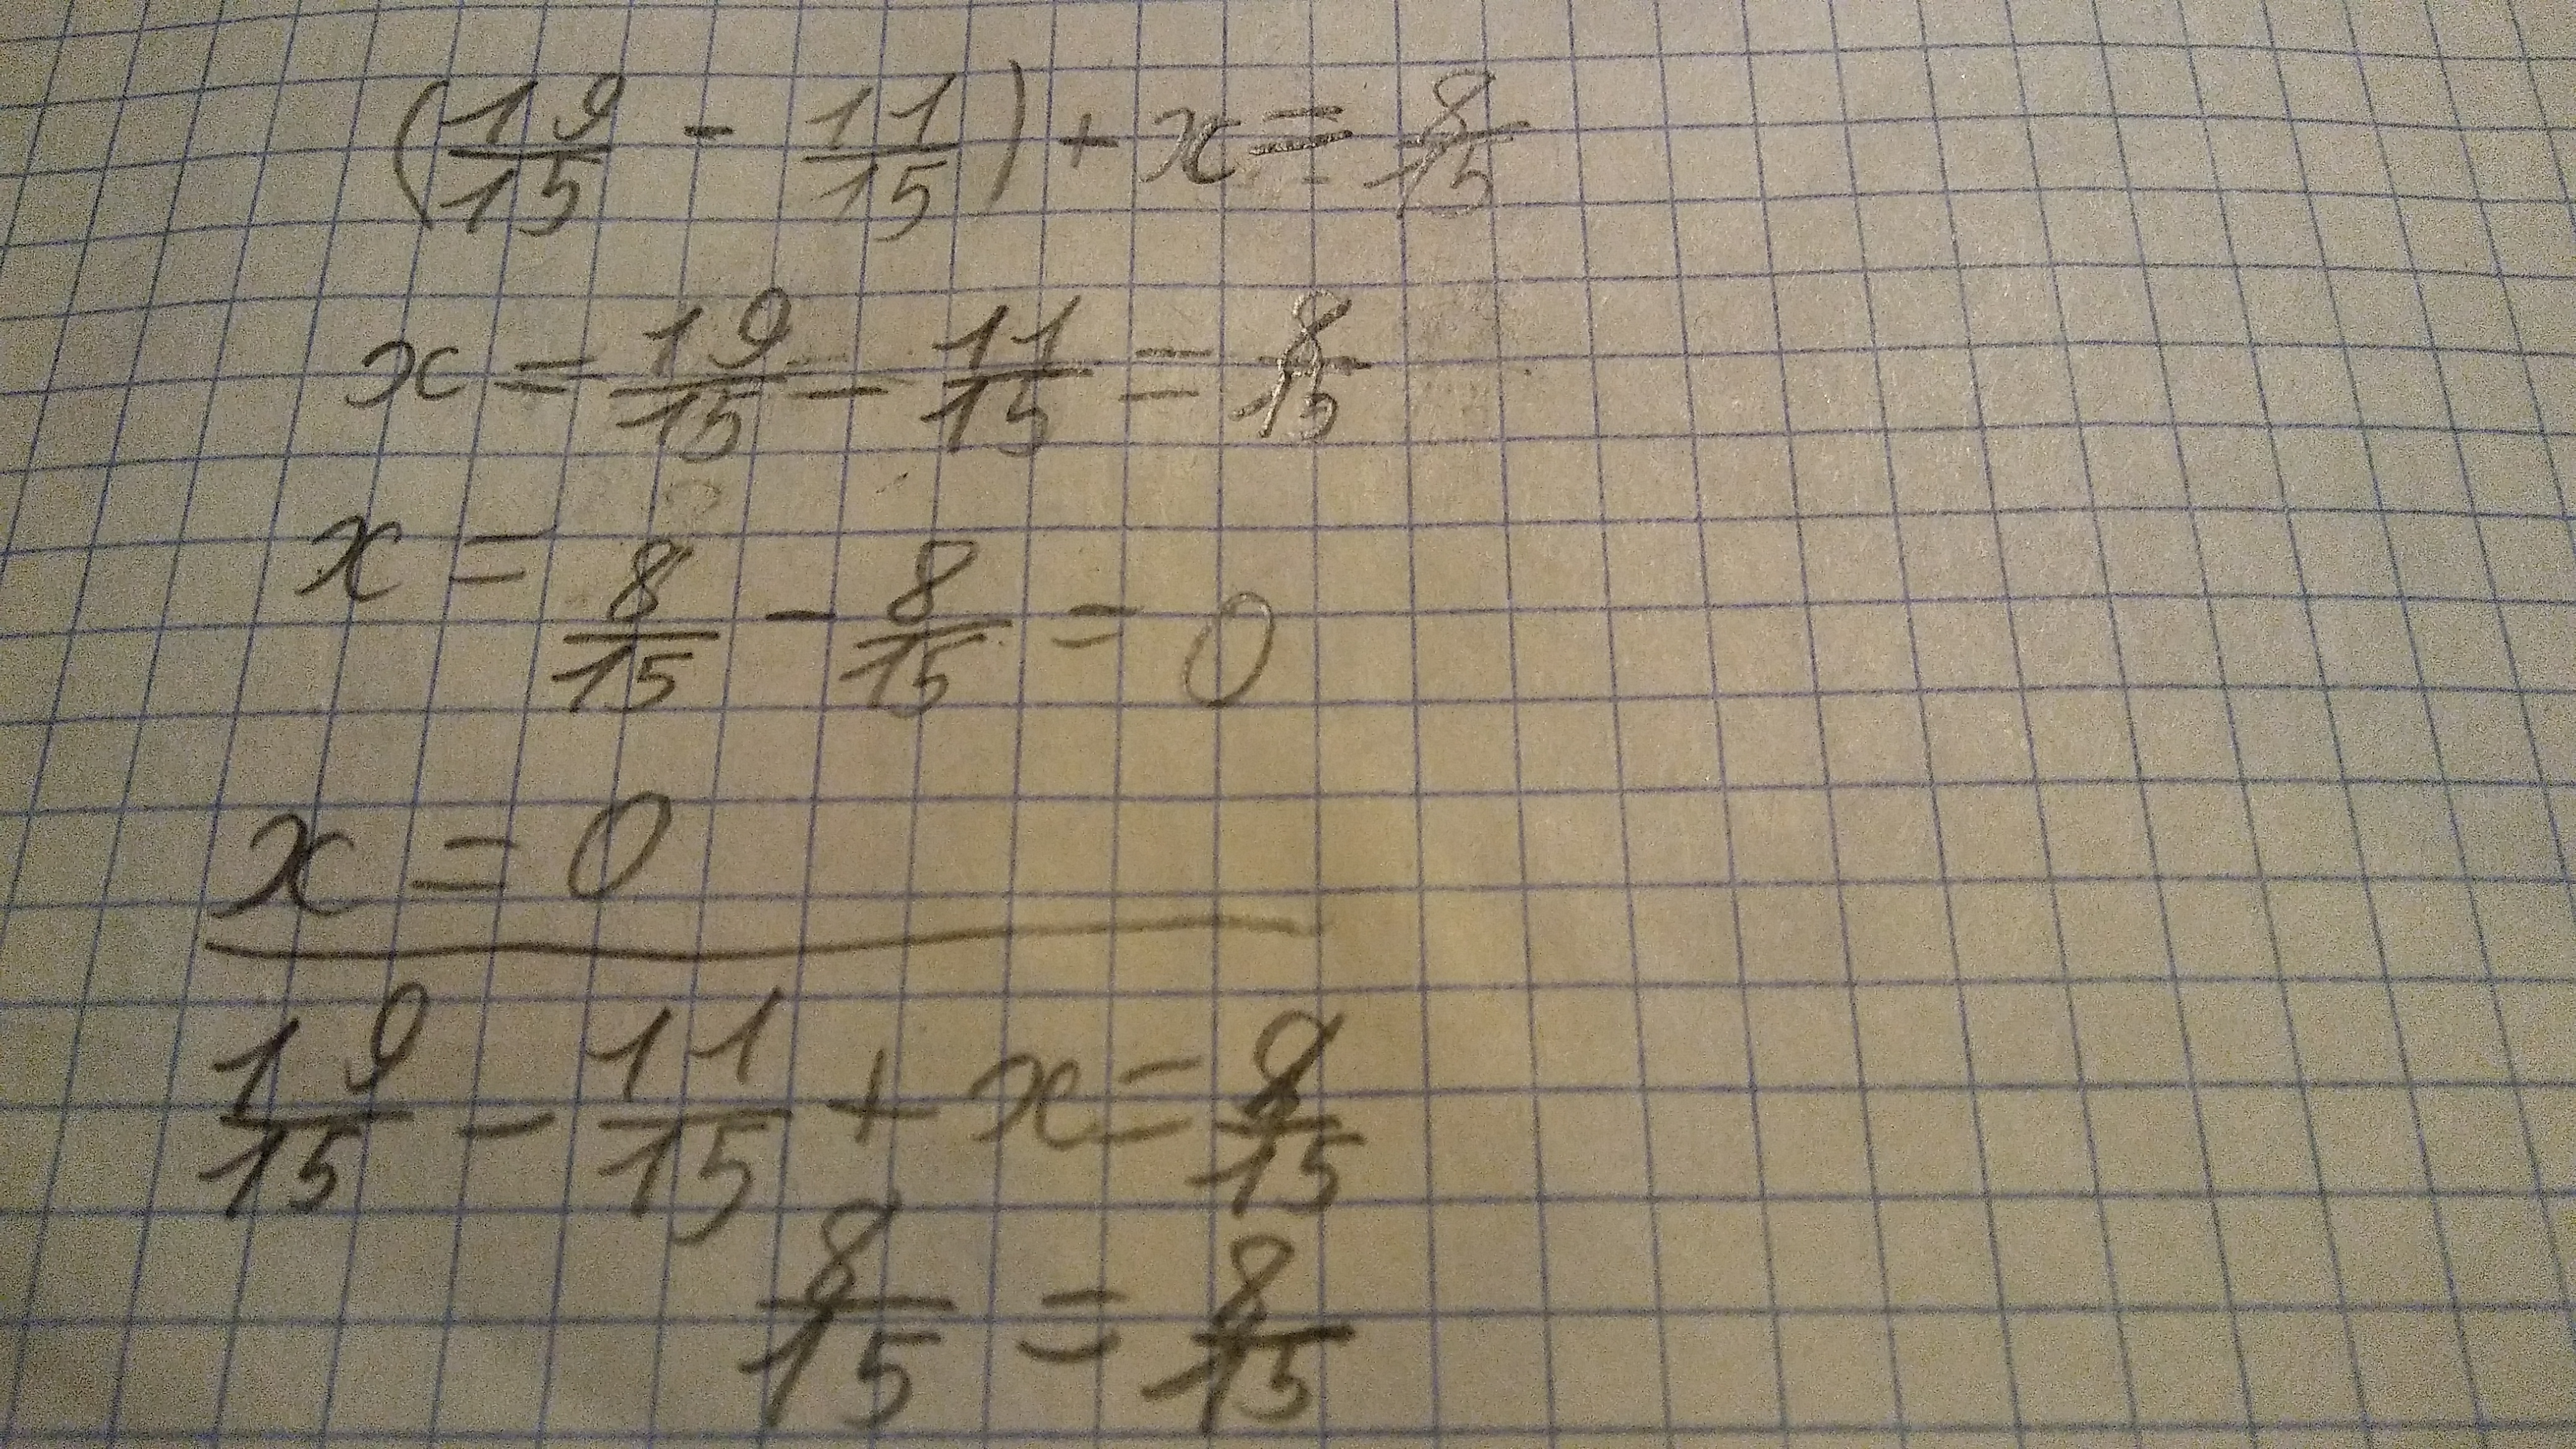 (19/15 - 11/15) + x = 8/15
x = 19/15 - 11/15 = 8/15
x = 8/15 - 8/15 = 0
x = 0
19/15 - 11/15 + x = 8/15
8/15 = 8/15